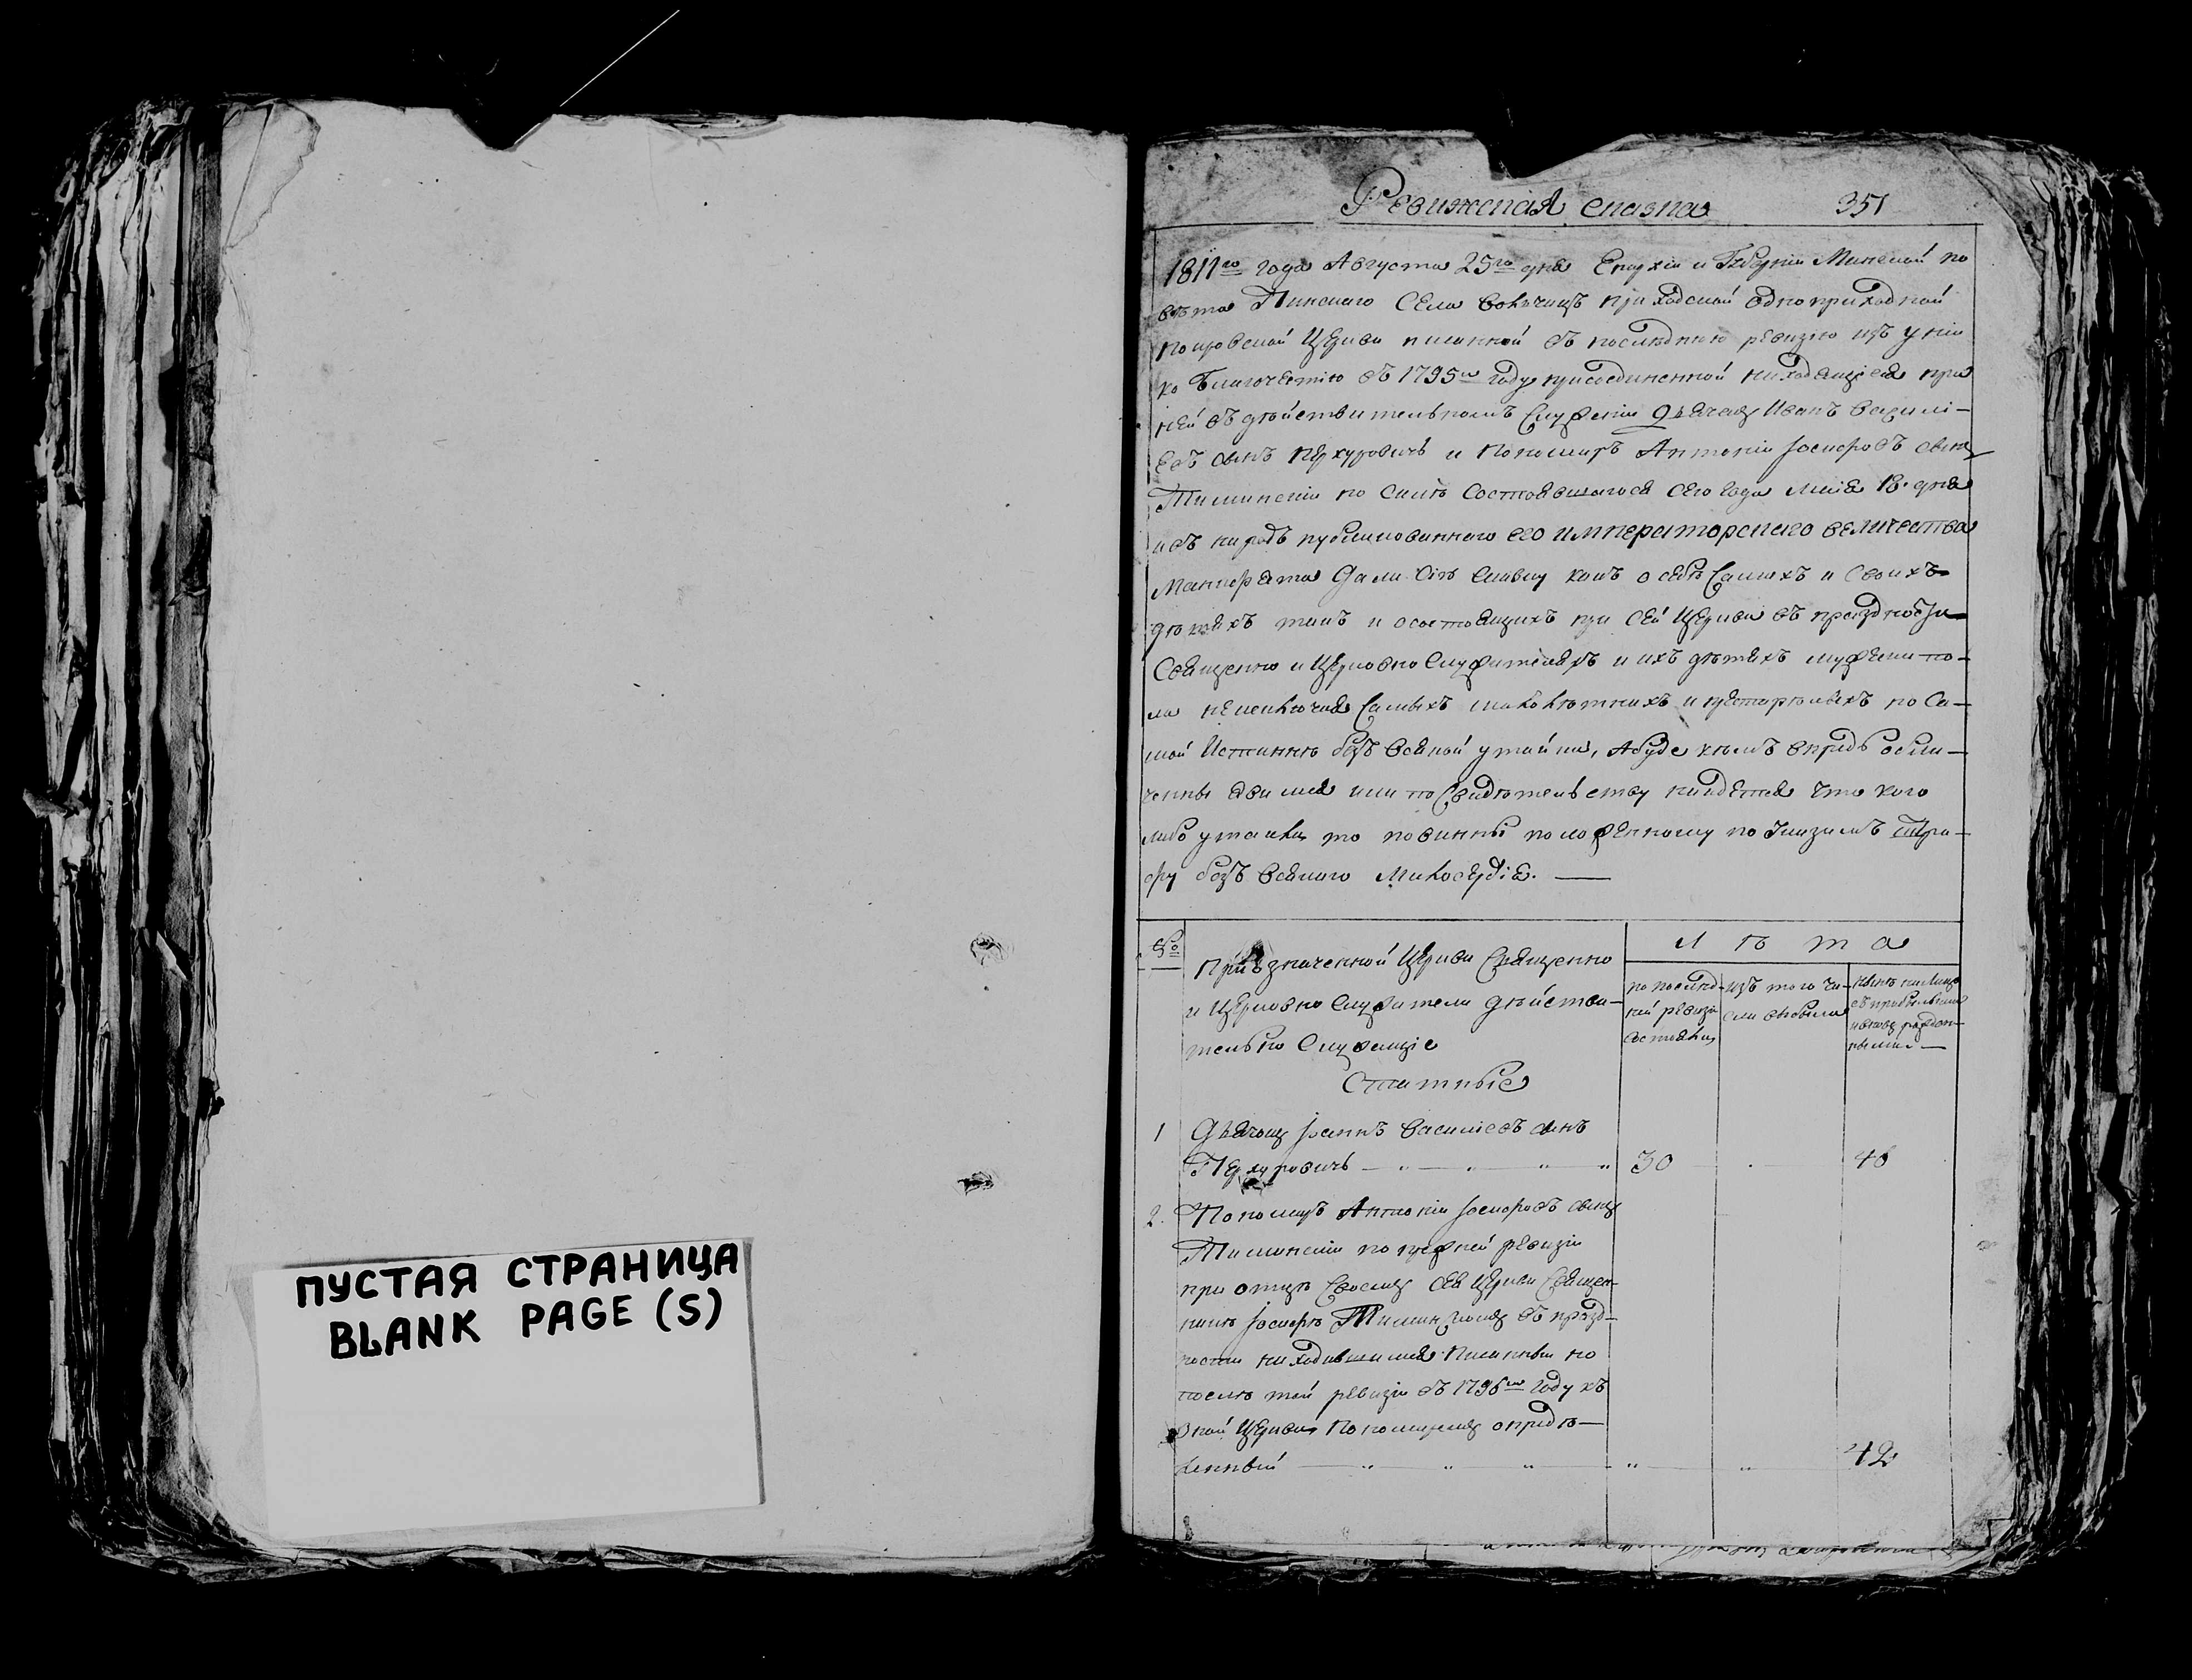 ПУСТАЯ СТРАНИЦА
BLANK PAGE (S)
Ревижская сказка 351
1811го года Августа 25го дня Епархіи и Губерніи Минской по
вѣта Пинскаго Села приходской одноприходной
Покровской Церкви писанной въ послѣднюю ревизію изъ уніи
ко Благочестію въ 1795м году присоединенной находящіеся при
ней въ дѣйствительномъ Служеніи Дьячекъ Иванъ Василі-
евъ сынъ и Пономарь Антоній Іосифовъ сынъ
по силѣ Состоявшагося сего года маія 18. дня
и въ народъ публикованнаго его императорскаго величества
Манифеста дали Сію Сказку какъ о себѣ Самихъ и Своихъ
дѣтяхъ такъ и осостоящихъ при сей Церкви въ праздности
Священно и Церковно Служителяхъ и ихъ дѣтяхъ мужеска по-
ла неисключая Самыхъ малолѣтнихъ и престарѣлыхъ по Са-
мой Истиннѣ безъ всякой утайки, Абуде кѣмъ впредь обли-
ченны явимся или по Свидѣтельству найдется что кого
либо утаили то повинны положенному по Указамъ Штра-
фу безъ всякаго Милосердія.
№
При означенной Церкви Священно
и Церковно Служители дѣйстви-
тельно Служащіе
Штатные
л ѣ т а
по послѣд-
ней ревизіи
состояли
изъ того чи-
сла выбыло
нынѣ налицо
съ прибылыми
и вновь рожден-
ными
1 Дьячокъ Іоаннъ Василіевъ сынъ
30 46
2. Пономарь Антоній Іосифовъ сынъ
по прежней ревизіи
при отцѣ Своемъ сея Церкви Священ-
никѣ Іосифѣ въ празд-
ности находившимся писанный но
послѣ той ревизіи въ 1796м году къ
оной Церкви Пономаремъ опредѣ-
ленный 42